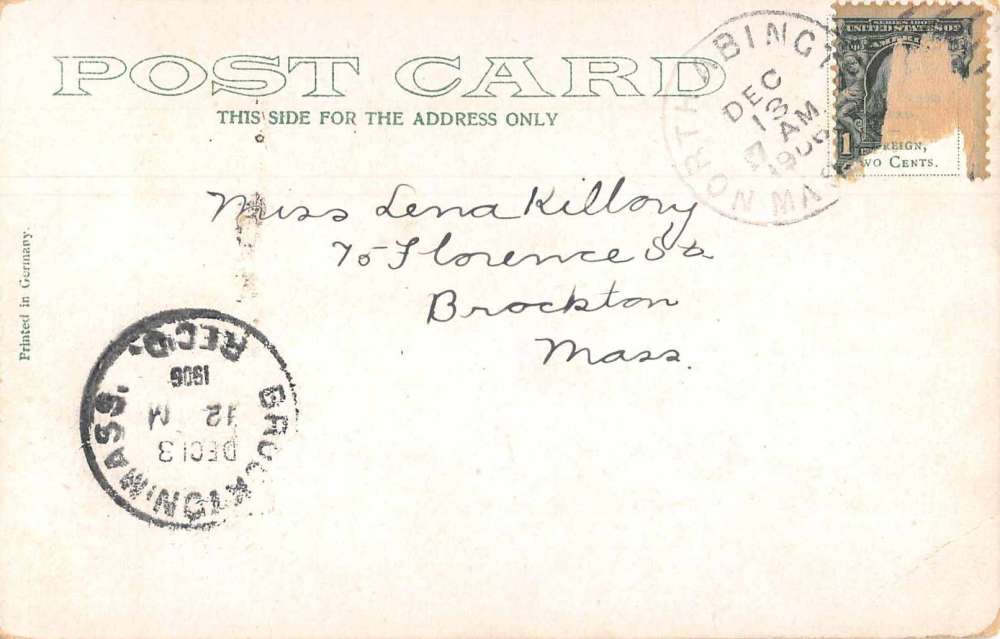 POST CARD
THIS SIDE FOR THE ADDRESS ONLY
NORTH ABINGTON MASS
DEC
13
7 AM
1906
SERIES 1902
UNITED STATES OF
AMERICA
1
FOREIGN,
TWO CENTS.
Miss Lena Killory
75 Florence St
Brockton
Mass.
Printed in Germany.
BROCKTON, MASS.
DEC 13
12 M
1906
REC'D.